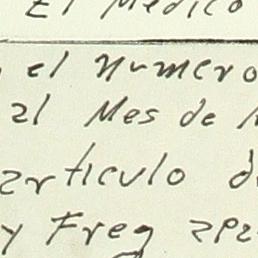 El Medico
el Numero
al Mes de
articulo d
y Freg apa